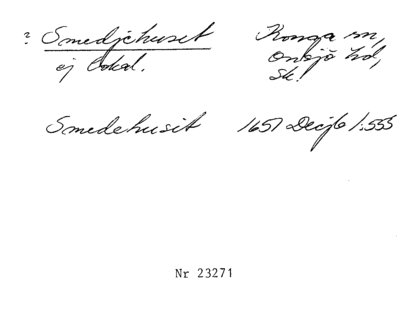 ? Smedjehuset Konga sn,
ej lokal. Onsjö hd,
Sk.
Smedehusit 1651 Decjb 1:555
Nr 23271